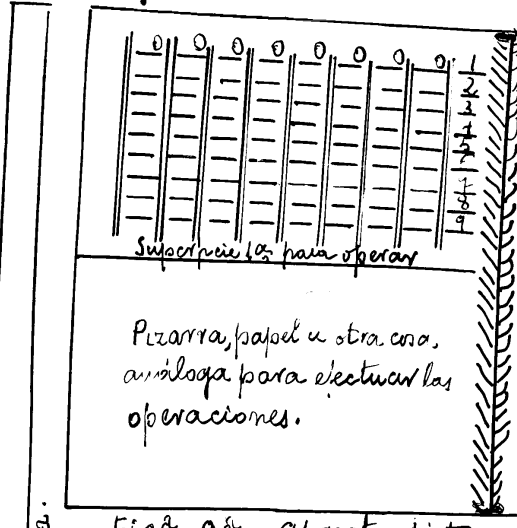 0 0 0 0 0 0 0 0
1
2
3
4
5
7
8
9
para operar
Pizarra, papel u otra cosa,
análoga para efectuar las
operaciones.